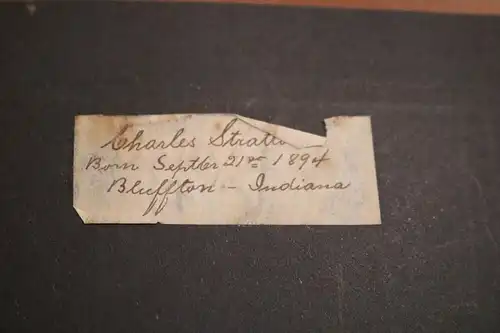 Charles Stratto
Born Septber 21st 1894
Bluffton - Indiana